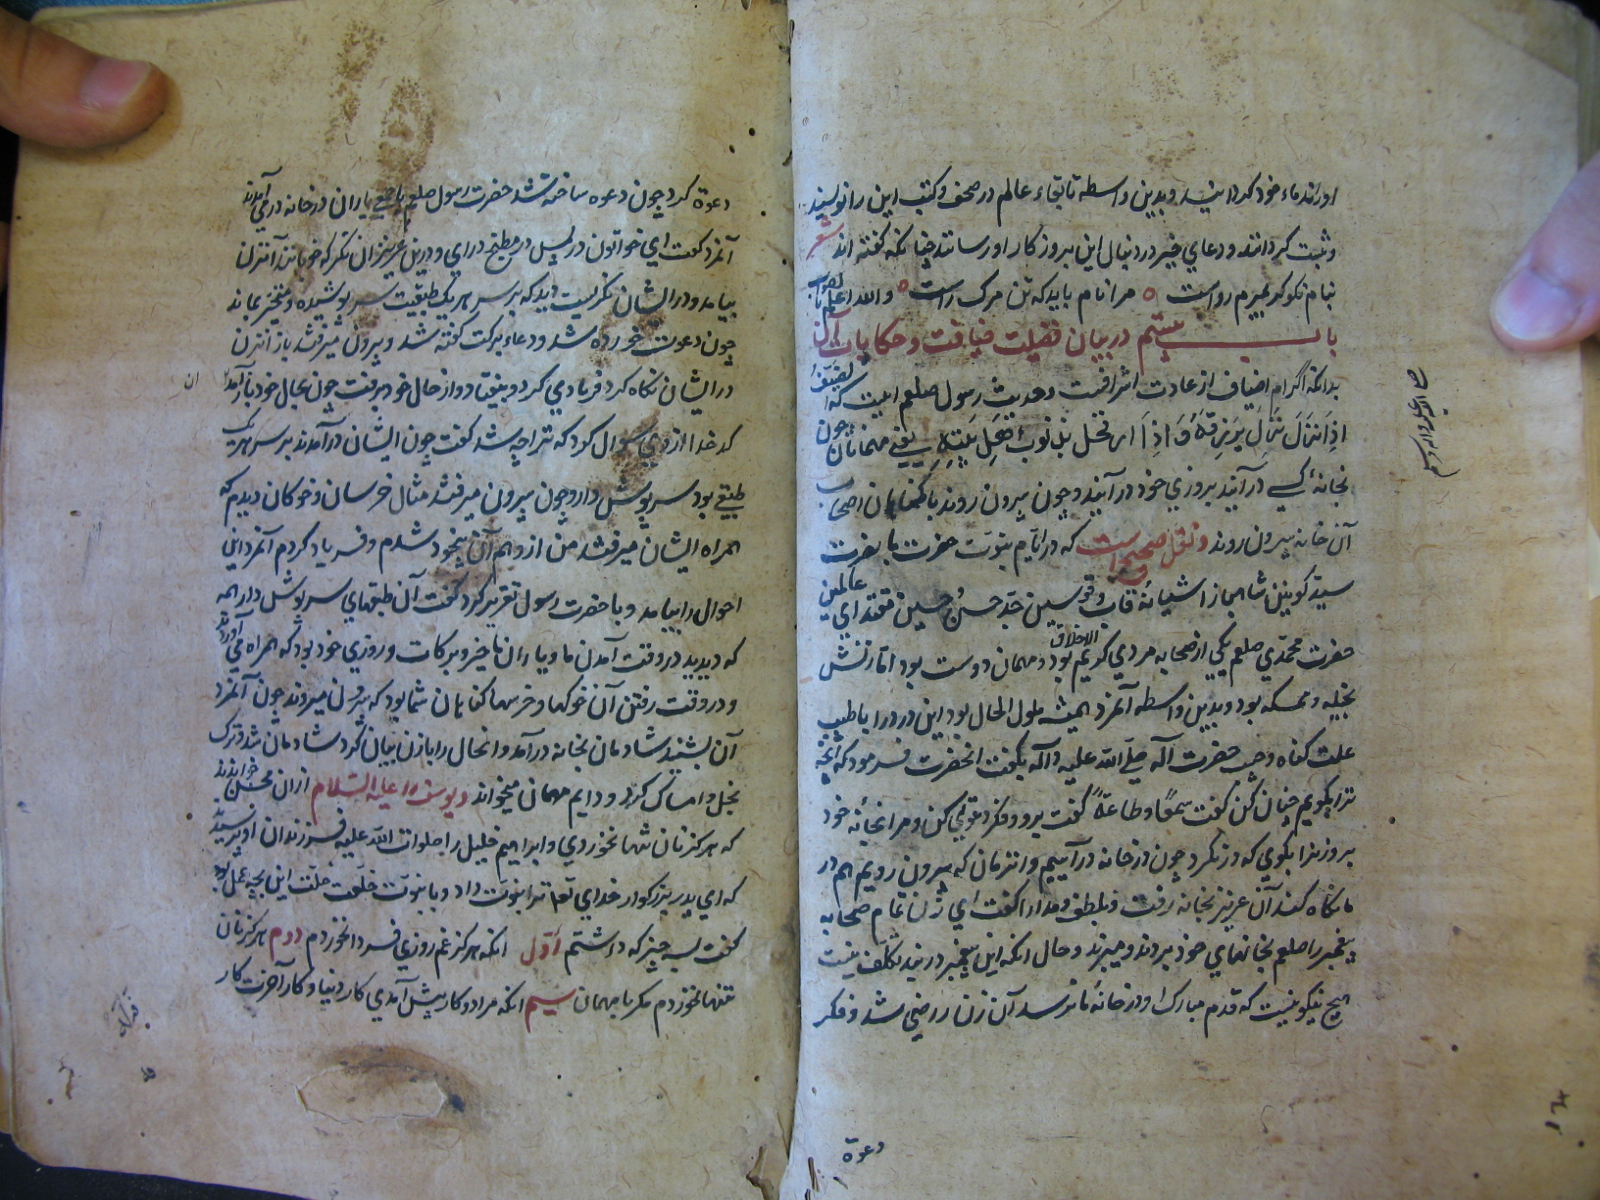 اورندماء خود کرد انید و بدین واسطه تا بقاء عالم در صحف و کتب این را نویسند
و ثبت کردانند و دعای خیر در دنبال این بروزکار او رسانند چنانکه گفته اند شعر
بنام نکو گر بمیرم رواست ه مرا نام باید که تن مرک راست ه والله اعلم بالصواب
باب بیستم در بیان فضیلت ضیافت و حکایات آن
بدانکه اکرام اضیاف از عادت اشرافست و حدیث رسول صلعم اینست که الضیف
اذا نزل نزل برزقه و اذا ارتحل بذنوب اهل بیته یعنی مهمانان چون
بخانهٔ کسی در آیند بروزی خود در آیند و چون بیرون روند با کناهان اصحاب
آن خانه بیرون روند و نقل صحیح است که در ایام نبوت حضرت با نصرت
سید کونین شاهباز آشیانهٔ قاب و قوسین جد حسن و حسین مقتدای عالمین
حضرت محمدی صلعم یکی از صحابه مردی کریم الاخلاق بود و مهمان دوست بود اما زنش
بخیله و ممسکه بود و بدین واسطه آنمرد همیشه ملول الحال بود این درد را با طبیب
علت کناه وحب حضرت آله صلی الله علیه و آله بگفت آنحضرت فرمود که آنچه
ترا بگویم چنان کن گفت سمعًا و طاعةً گفت برو و فکر دعوتی کن و مرا بخانهٔ خود
بر و زنرا بگوی که در نکرد چون در خانه در آییم و انزمان که بیرون رویم هم در
ما نگاه کند آن عزیز بخانه رفت و بلطف و مدارا گفت ای زن تمام صحابه
پیغمبر را صلعم بخانهای خود بردند و میبرند و حال آنکه این پیغمبر در بند تکلف نیست
هیچ نیکو نیست که قدم مبارک او در خانهٔ ما نرسد آن زن راضی شد و فکر
دعوة
صلی الله علیه و آله وسلم
دعوة کرد چون دعوه ساخته شد حضرت رسول صلعم با جمعی یاران در خانه در می آمدند
آنمرد گفت ای خواتون در پس در مطبخ درای و درین عزیزان نکر که خوبانند آنزن
بیامد و در ایشان نکریست دید که بر سر هر یک طبقیست سر پوشیده و متحیر بماند
چون دعوت خورده شد و دعاء برکت گفته شد و بیرون میرفتند باز آنزن
در ایشان نگاه کرد فریادی کرد و بیفتاد و از حال خود برفت چون بحال خود باز آمد
ان
کدخدا از وی سوال کرد که ترا چه شد گفت چون ایشان در آمدند بر سر هر یک
طبقی بود سر پوش دار و چون بیرون میرفتند مثال خرسان و خوکان دیدم که
همراه ایشان میرفتند من از وهم آن بیخود شدم و فریاد کردم آنمرد این
احوال را بیامد و با حضرت رسول تقریر کرد گفت آن طبقهای سر پوش دار همه
که دیدید در وقت آمدن ما و یاران ما خیر و برکات و روزی خود بود که همراه می آورند
و در وقت رفتن آن خوکها و خرسها کناهان شما بود که بیرون میروند چون آنمرد
آن بشنید شادمان بخانه در آمد و انحال را با زن بیان کرد شادمان شد و ترک
بخل و امساک کرد و دایم مهمان میخواند و یوسف را علیه السلام از ان محسن خواندند
که هرکز نان تنها نخوردی و ابراهیم خلیل را صلوات الله علیه فرزندان او پرسیدند
که ای پدر بزرکوار خدای تعه ترا نبوت داد و با نبوت خلعت خلت این بچه عمل بود
گفت بسه چیز که داشتم اول انکه هرکز غم روزی فردا نخوردم دوم هرکز نان
تنها نخوردم مکر با مهمان سیم انکه مرا دو کار پیش آمدی کار دنیا و کار آخرت کار